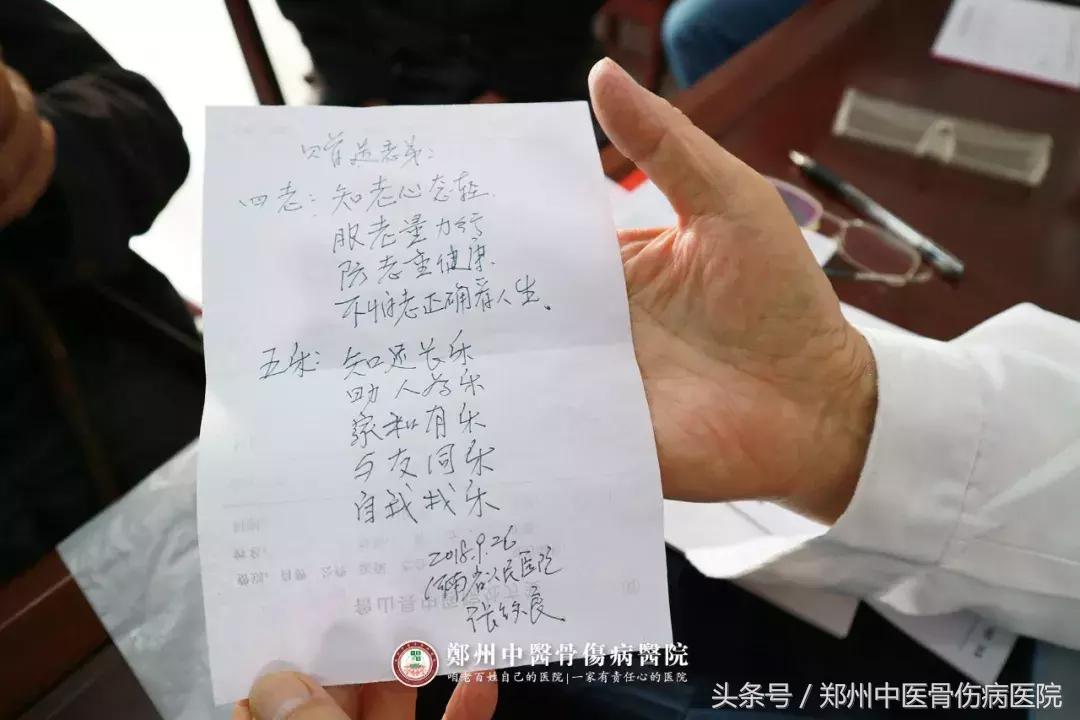 赠送老弟：
四老：知老心态轻.
服老量力行
防老重健康.
不怕老正确看人生。
五乐：知足长乐
助人为乐
家和有乐
与友同乐
自我找乐
2018.9.26
河南省人民医院
郑州中醫骨傷病醫院
咱老百姓自己的医院|一家有责任心的医院
头条号／郑州中医骨伤病医院